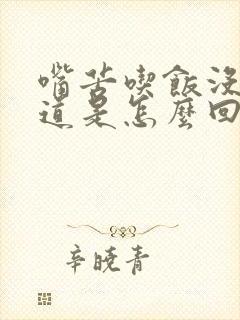 嘴苦喫飯沒
道是怎麼回
辛曉青